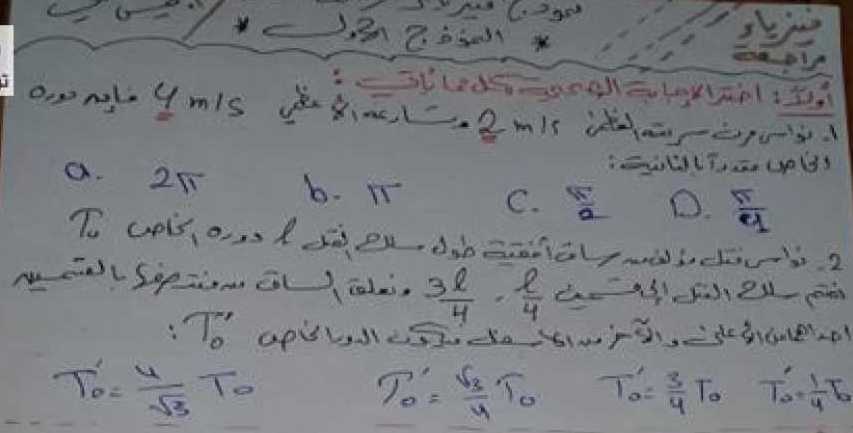 فيزياء
مراجعة
* النموذج الأول *
أولاً: اختر الإجابة الصحيحة لكل مما يأتي:
1. نواس مرن سرعته العظمى 2 m/s وتسارعه الأعظمي 4 m/s فإن دوره
الخاص مقدراً بالثانية:
a. 2π b. π C. π/2 D. π/4
2. نواس فتل مؤلف من ساق أفقية طول سلك الفتل l دوره الخاص T₀
نقسم سلك الفتل إلى قسمين l/4 ، 3l/4 ونعلق الساق من منتصفها بالقسمين
احداهما من الأعلى والآخر من الأسفل فيكون الدور الخاص T₀′:
T₀′ = 4/√3 T₀ T₀′ = √3/4 T₀ T₀′ = 3/4 T₀ T₀′ = 1/4 T₀